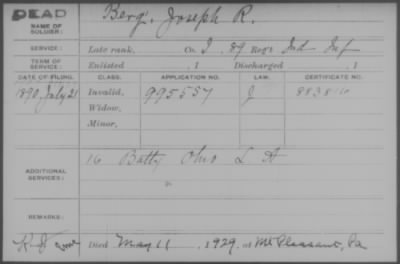 DEAD
NAME OF SOLDIER: Berg, Joseph R.
SERVICE: Late rank, Co. I, 89 Reg't Ind Inf
TERM OF SERVICE: Enlisted , 1 Discharged , 1
DATE OF FILING. CLASS. APPLICATION NO. LAW. CERTIFICATE NO.
1890, July 21 Invalid, 995557 J 883816
Widow,
Minor,
ADDITIONAL SERVICES: 16 Batty Ohio L A
REMARKS:
Died May 11, 1929, at Mt Pleasant, Pa